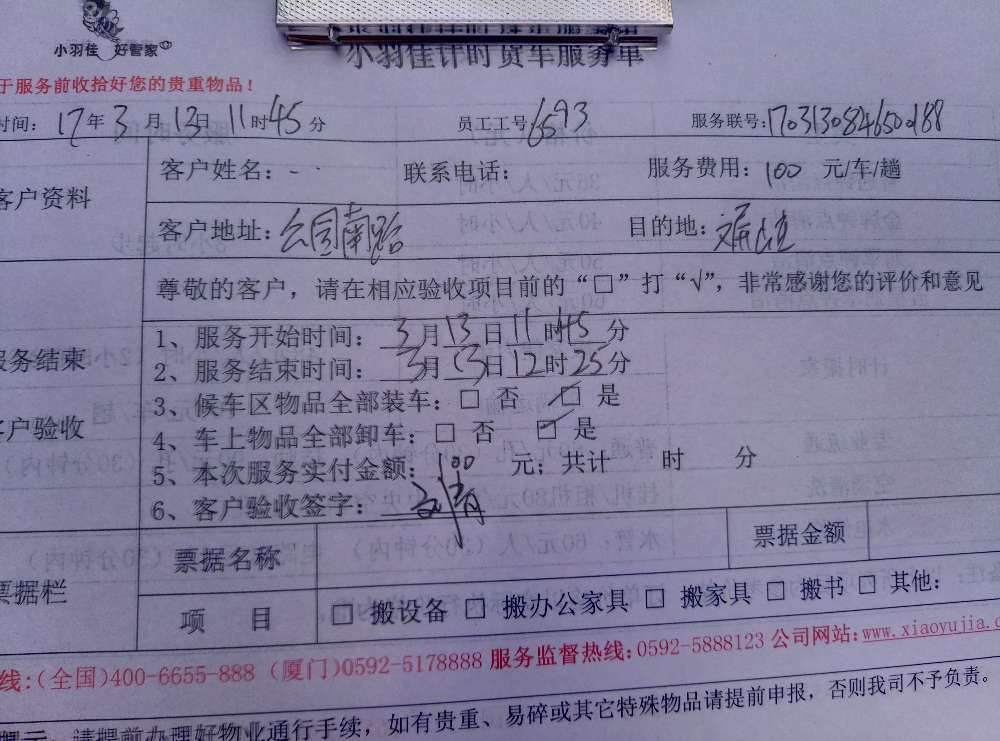 小羽佳 好管家
小羽佳计时货车服务单
于服务前收拾好您的贵重物品！
时间：17年3月13日11时45分 员工工号：6593 服务联号：
客户资料 客户姓名： 联系电话： 服务费用：100 元/车/趟
客户地址：公园南路 目的地：
尊敬的客户，请在相应验收项目前的“□”打“√”，非常感谢您的评价和意见
服务结束
客户验收
1、服务开始时间：3月13日11时45分
2、服务结束时间：3月13日12时25分
3、候车区物品全部装车：□ 否 ☑ 是
4、车上物品全部卸车：□ 否 ☑ 是
5、本次服务实付金额：100 元；共计 时 分
6、客户验收签字：
票据栏 票据名称 票据金额
项 目 □ 搬设备 □ 搬办公家具 □ 搬家具 □ 搬书 □ 其他：
线：(全国)400-6655-888 (厦门)0592-5178888 服务监督热线：0592-5888123 公司网站：www.xiaoyujia.c
提示：请提前办理好物业通行手续，如有贵重、易碎或其它特殊物品请提前申报，否则我司不予负责。